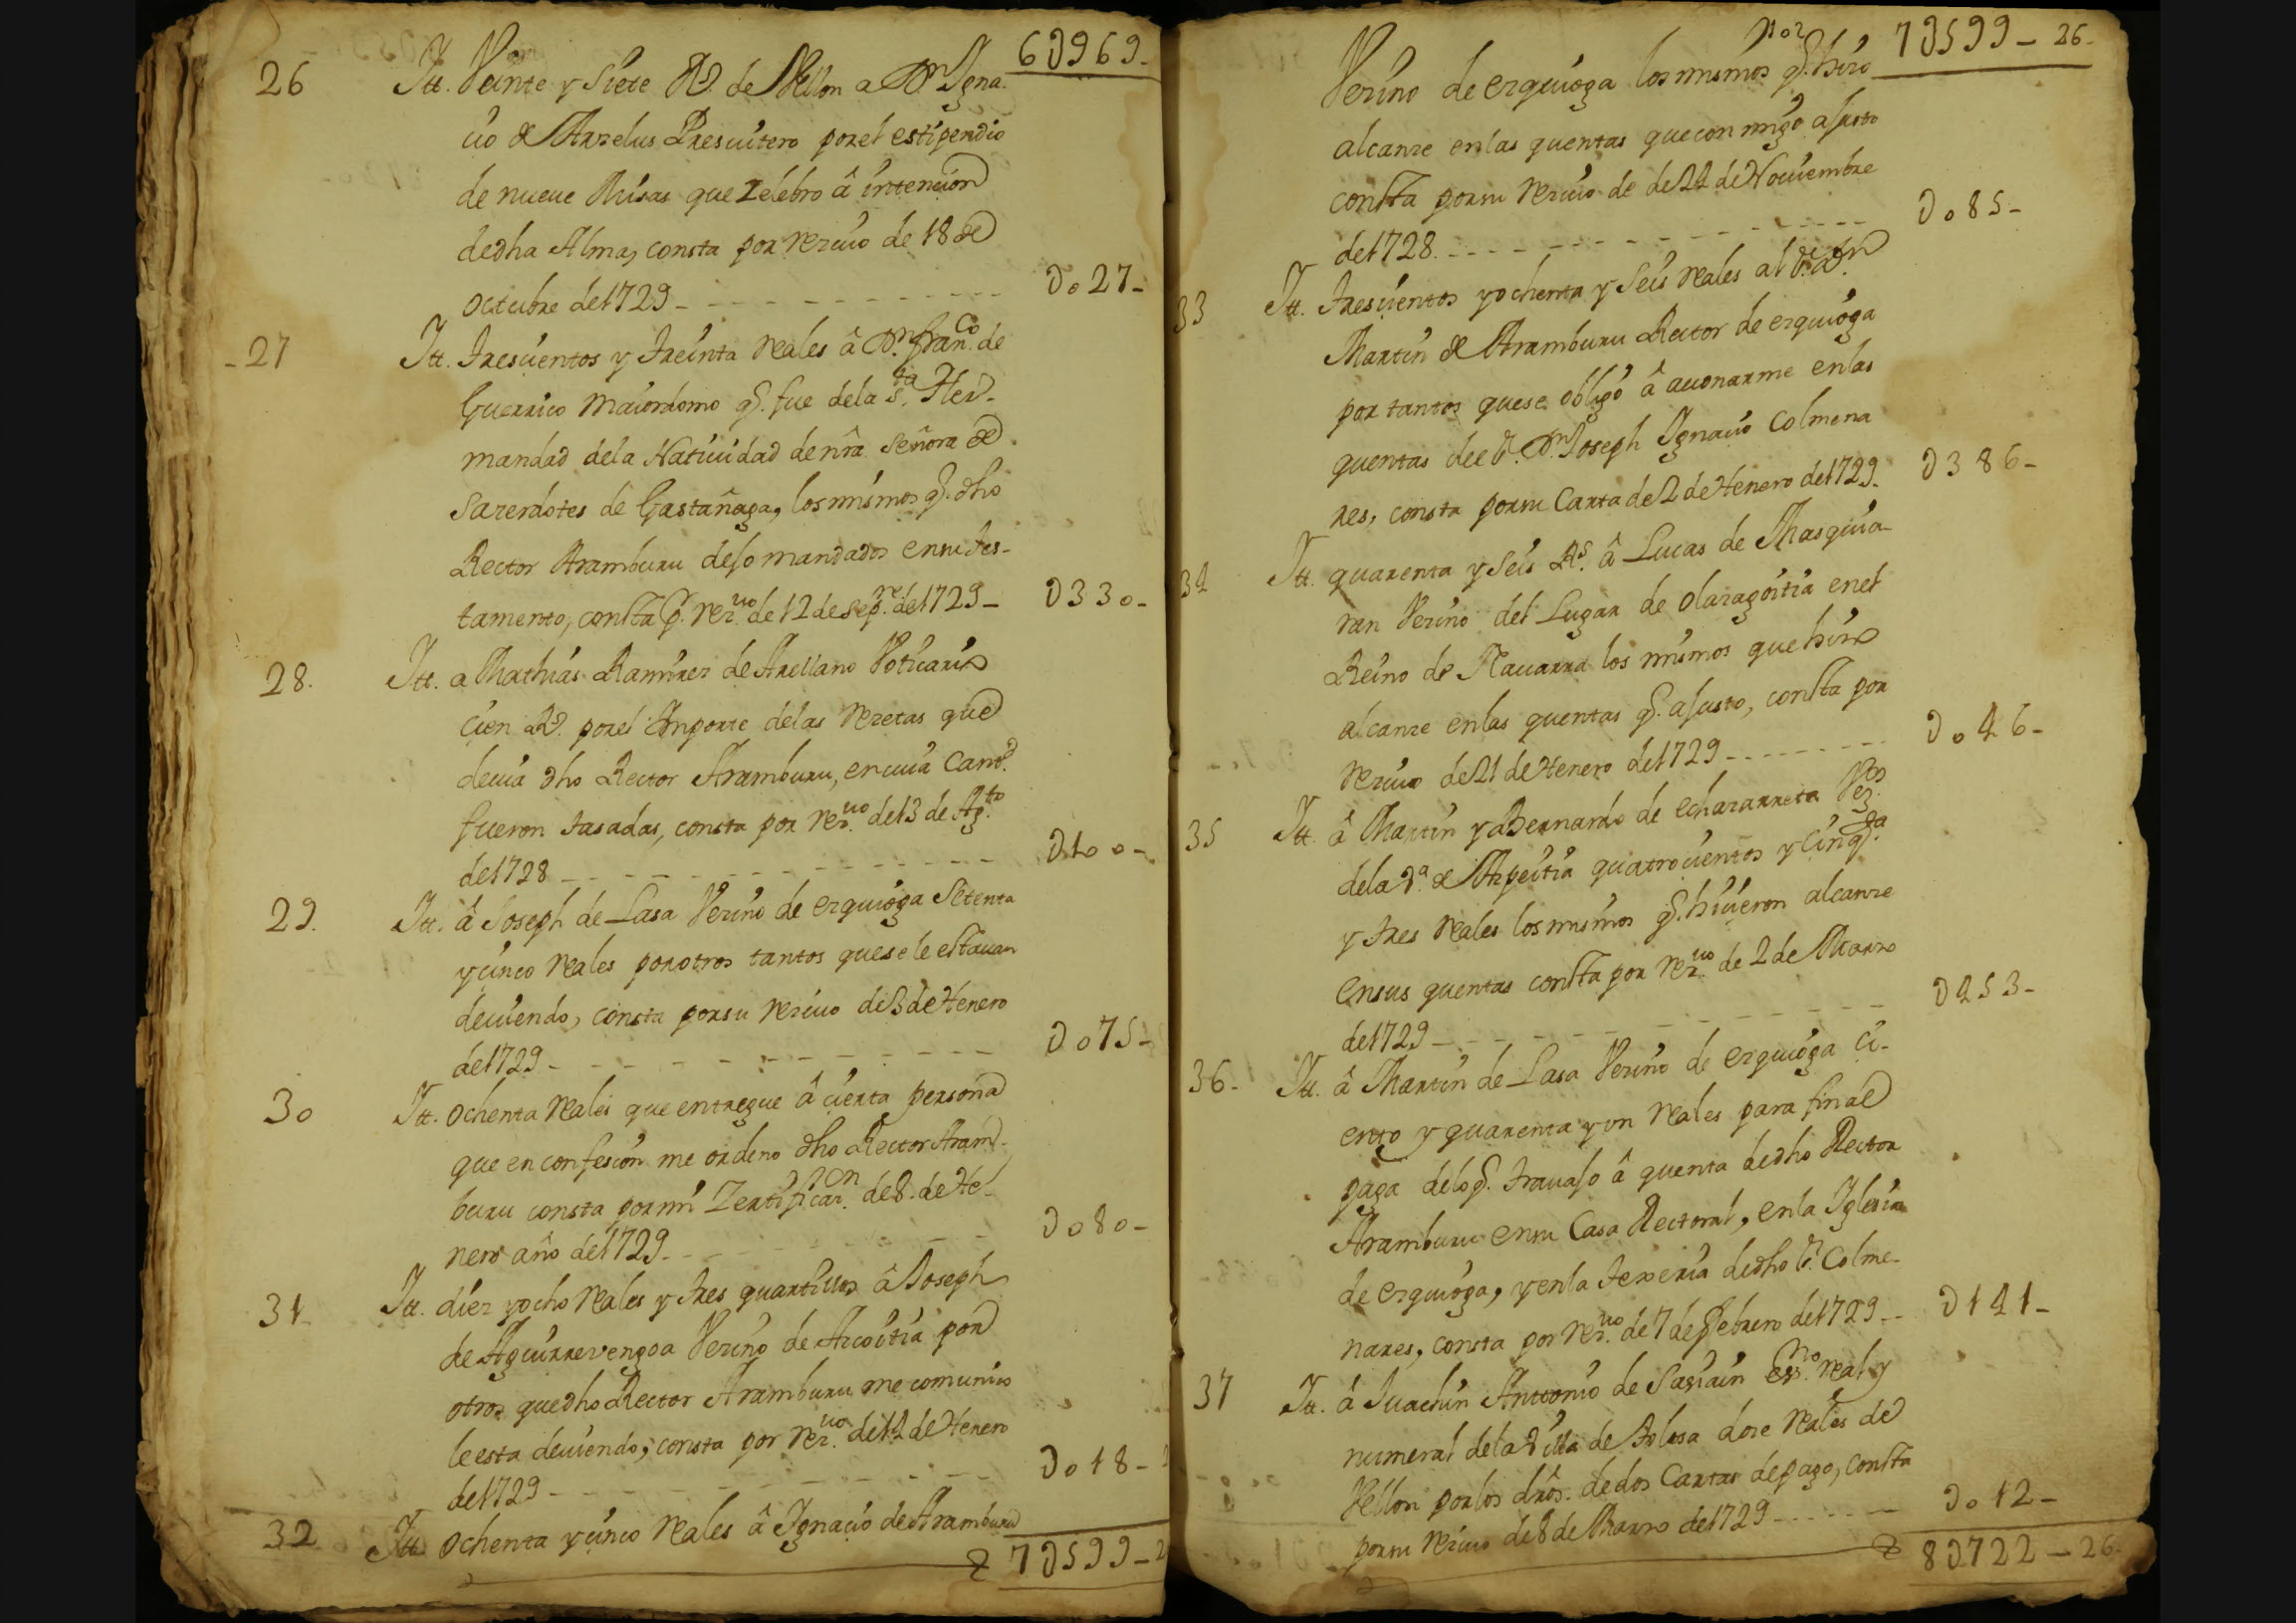 6U969-
26 Itt. Veinte y Siete Rs. de Vellon a Dn. Igna-
cio de Arzelus Presvitero por el estipendio
de nueve Misas que Zelebro â intencion
de dha Alma, consta por rezivo de 18 de
octubre de 1729 - U027-
-27 Itt. Trescientos y Treinta Reales â Dn. Franco. de
Guerrico Maiordomo q. fue de la Sta. Her-
mandad de la Natividad de nra. Señora de
Sazerdotes de Gastañaga, los mismos q. dho
Rector Aramburu dejo mandados en su tes-
tamento, consta p. rezvo. de 12 de sepre. de 1729 - U330-
28. Itt. a Mathias Ramirez de Arellano Voticario
cien Rs. por el Importe de las rezetas que
devia dho Rector Aramburu, en cuia cantd.
fueron tasadas, consta por rezvo. de 13 de Agto.
de 1728 - U100-
29. Itt. â Joseph de Lasa Vezino de ezquioga Setenta
y cinco Reales por otros tantos que se le estavan
deviendo, consta por su rezivo de 3 de Henero
de 1729 - U075-
30 Itt. ochenta Reales que entregue â cierta persona
que en confesion me ordeno dho Rector Aram-
buru consta por mi Zertificazon. de 8. de He-
nero año de 1729 - U080-
31- Itt. diez y ocho Reales y tres quartillos â Joseph
de Aguirrevengoa Vezino de Azcoitia por
otros que dho Rector Aramburu me comunico
le esta deviendo, consta por rezvo. de 12 de Henero
de 1729 - U018-
32 Itt. ochenta y cinco Reales â Ignacio de Aramburu
7U599-2
7U599-26-
Vezino de ezquioga los mismos q. hizo
alcanze en las quentas que con migo ajusto
consta por su rezivo de de 22 de Noviembre
de 1728. - U085-
33 Itt. Trescientos y ochenta y Seis Reales al
Martin de Aramburu Rector de ezquioga
por tantos que se obligo â avonarme en las
quentas de el Sr. Dn. Joseph Ignacio Colmena
res, consta por su Carta de 2 de Henero de 1729- U386-
34 Itt. quarenta y Seis Rs. â Lucas de Masquia-
ran Vezino del Lugar de olazagoitia en el
Reino de Navarra los mismos que hizo
alcanze en las quentas q. ajusto, consta por
rezivo de 21 de Henero de 1729 - U046-
35 Itt. â Martin y Bernardo de echazarreta Vezos.
de la Va. de Azpeitia quatrocientos y cinqta.
y tres Reales los mismos q. hicieron alcanze
en sus quentas consta por rezvo. de 2 de Marzo
de 1729 - U453-
36- Itt. â Martin de Lasa Vezino de ezquioga ci-
ento y quarenta y un Reales para final
paga de lo q. travajo â quenta de dho Rector
Aramburu en su Casa Rectoral, en la Iglesia
de ezquioga, y en la texeria de dho Sr. Colme-
nares, consta por rezvo. de 7 de febrero de 1729 - U141-
37 Itt. â Juachin Antonio de Sasiain esno. real y
numeral de la Villa de Tolosa doze Reales de
Vellon por los dros. de dos Cartas de pago, consta
por su rezivo de 8 de Marzo de 1729 - U012-
8U722-26-